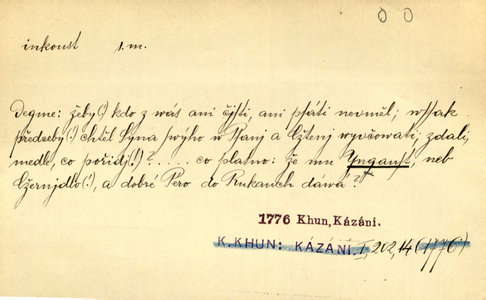 inkoust s.m.
Degme: žeby(!) kdo z wás ani čjsti, ani psáti neuměl; wssak
předceby(!) chtěl Syna swýho w Psanj a Čtenj wyučowati; zdali
medle, co pořídj(!)?..... co platno: že mu Yngaust, neb
Čžernjdlo(!), a dobré Pero do Rukauch dáwá?
1776 Khun, Kázáni.
K. KHUN: KÁZÁNI. I, 202, 14 (1776)